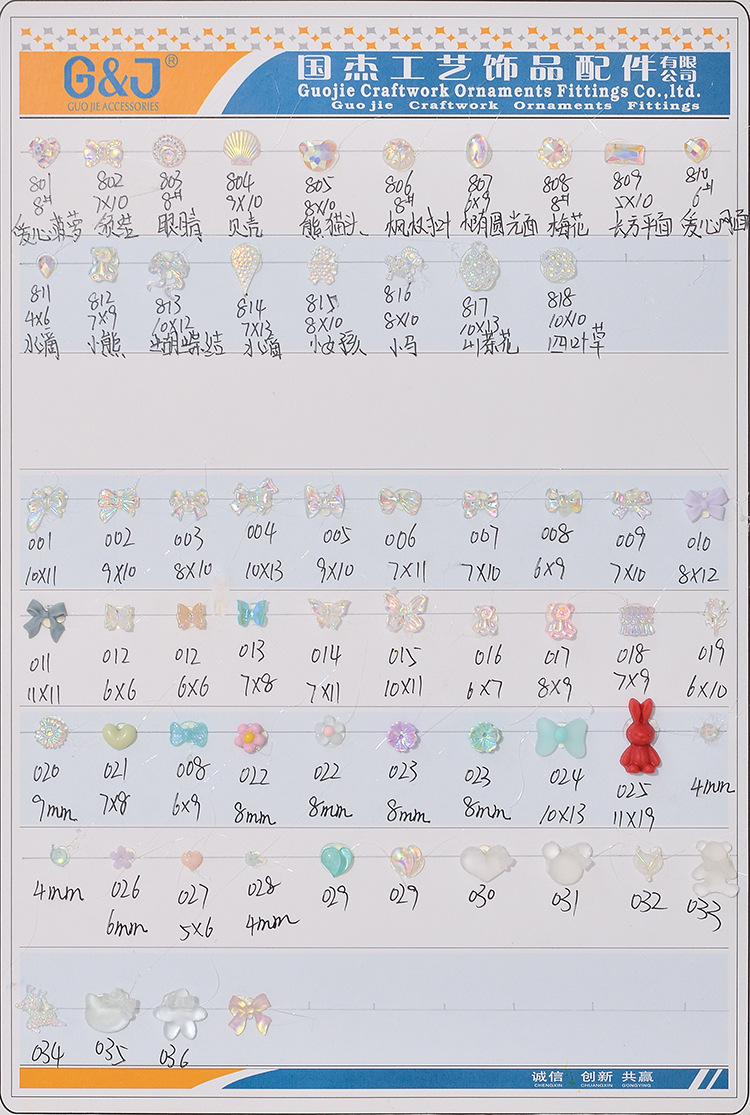 G&J®
GUO JIE ACCESSORIES
国杰工艺饰品配件有限公司
Guojie Craftwork Ornaments Fittings Co.,ltd.
Guojie Craftwork Ornaments Fittings
801 802 803 804 805 806 807 808 809 810
8# 7X10 8# 9X10 8X10 8# 6X9 8# 5X10 6#
爱心菠萝 领结 眼睛 贝壳 熊猫头 枫枝叶 椭圆光面 梅花 长方平面 爱心网面
811 812 813 814 815 816 817 818
4X6 7X9 10X12 7X13 8X10 8X10 10X13 10X10
水滴 小熊 蝴蝶结 水滴 小女孩 小马 山茶花 四叶草
001 002 003 004 005 006 007 008 009 010
10X11 9X10 8X10 10X13 9X10 7X11 7X10 6X9 7X10 8X12
011 012 012 013 014 015 016 017 018 019
11X11 6X6 6X6 7X8 7X11 10X11 6X7 8X9 7X9 6X10
020 021 008 022 022 023 023 024 025 4mm
9mm 7X8 6X9 8mm 8mm 8mm 8mm 10X13 11X19
4mm 026 027 028 029 029 030 031 032 033
6mm 5X6 4mm
034 035 036
诚信 创新 共赢
CHENGXIN CHUANGXIN GONGYING